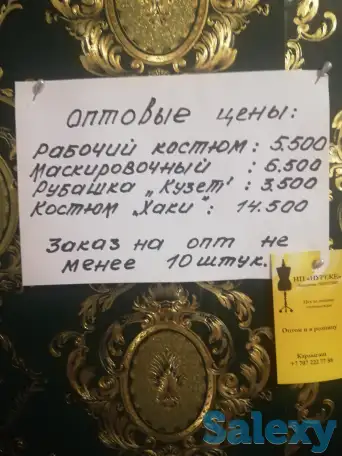 Оптовые цены:
Рабочий костюм: 5.500
Маскировочный : 6.500
Рубашка „Кузет": 3.500
Костюм „Хаки": 14.500
Заказ на опт не
менее 10 штук.
ИП «НУРЕКЕ»
Оптом и в розницу
+7 707 222 77 89
Salexy